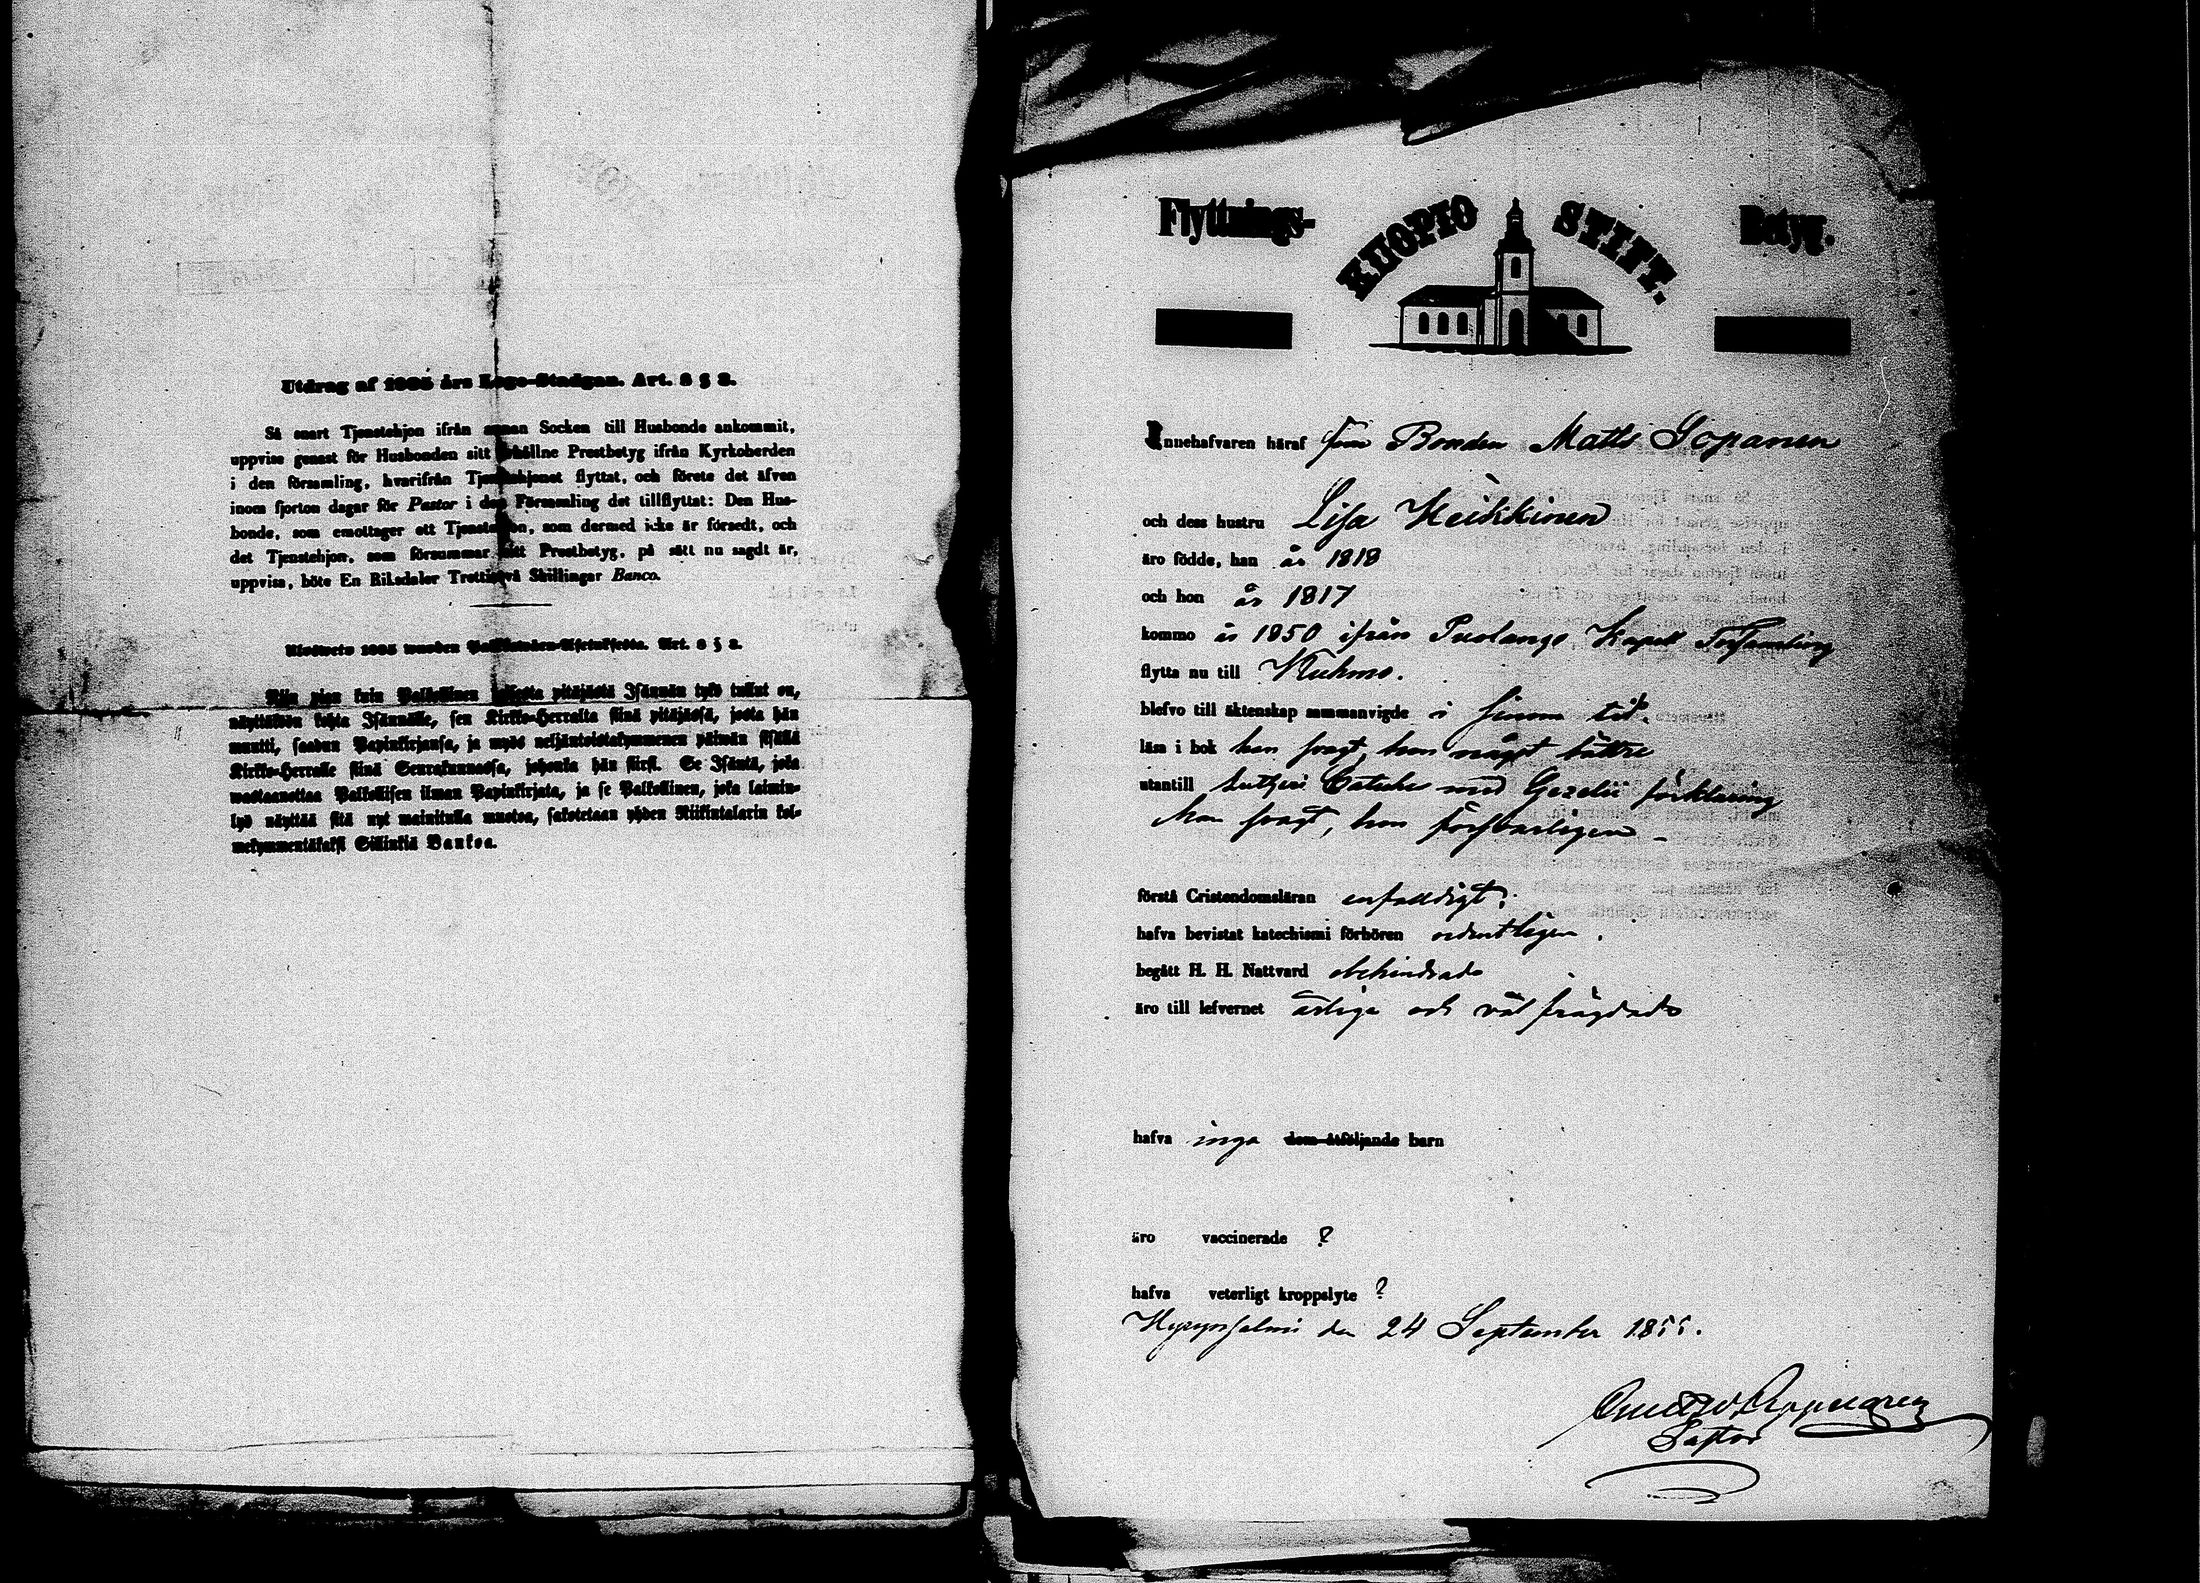 Utdrag af 1805 års Lego-Stadgan. Art. 8 § 2.
Så snart Tjenstehjon ifrån annan Socken till Husbonde ankommit,
uppvise genast för Husbonden sitt erhållne Prestbetyg ifrån Kyrkoherden
i den församling, hvarifrån Tjenstehjonet flyttat, och förete det äfven
inom fjorton dagar för Pastor i den Församling det tillflyttat: Den Hus-
bonde, som emottager ett Tjenstehjon, som dermed icke är försedt, och
det Tjenstehjon, som försummar sitt Prestbetyg, på sätt nu sagdt är,
uppvisa, böte En Riksdaler Trettiotvå Skillingar Banco.
Ulosweto 1805 wuoden Palkkawäen-Asetuksesta. Art. 8 § 2.
Niin pian kuin Palkollinen toisesta pitäjästä Isännän tykö tullut on,
näyttäköön kohta Isännälle, sen Kirkko-Herralta siinä pitäjässä, josta hän
muutti, saadun Papinkirjansa, ja myös neljäntoistakymmenen päiwän sisällä
Kirkko-Herralle siinä Seurakunnassa, johonka hän siirsi. Se Isäntä, joka
wastaanottaa Palkollisen ilman Papinkirjata, ja se Palkollinen, joka laimin-
lyö näyttää sitä nyt mainitulla muotoa, sakotetaan yhden Riikintalarin kol-
mekymmentäkaksi Sillinkiä Bankoa.
Flyttnings- KUOPIO STIFT. Betyg.
Innehafvaren häraf Bonden Matts Sopanen
och dess hustru Lisa Heikkinen
äro födde, han år 1818
och hon år 1817
kommo år 1850 ifrån Puolango Kapell Församling
flytta nu till Kuhmo.
blefvo till äktenskap sammanvigde i sinom tid.
läsa i bok han svagt, hon något bättre
utantill Lutheri Cateches med Gezelii förklaring
han svagt, hon försvarligen
förstå Cristendomsläran enfaldigt;
hafva bevistat katechismi förhören ordentligen.
begått H. H. Nattvard obehindrade
äro till lefvernet ärliga och väl frägdade
hafva inga dem åtföljande barn
äro vaccinerade ?
hafva veterligt kroppslyte ?
Hyrynsalmi den 24 September 1855.
Gustav Appelgren
Pastor